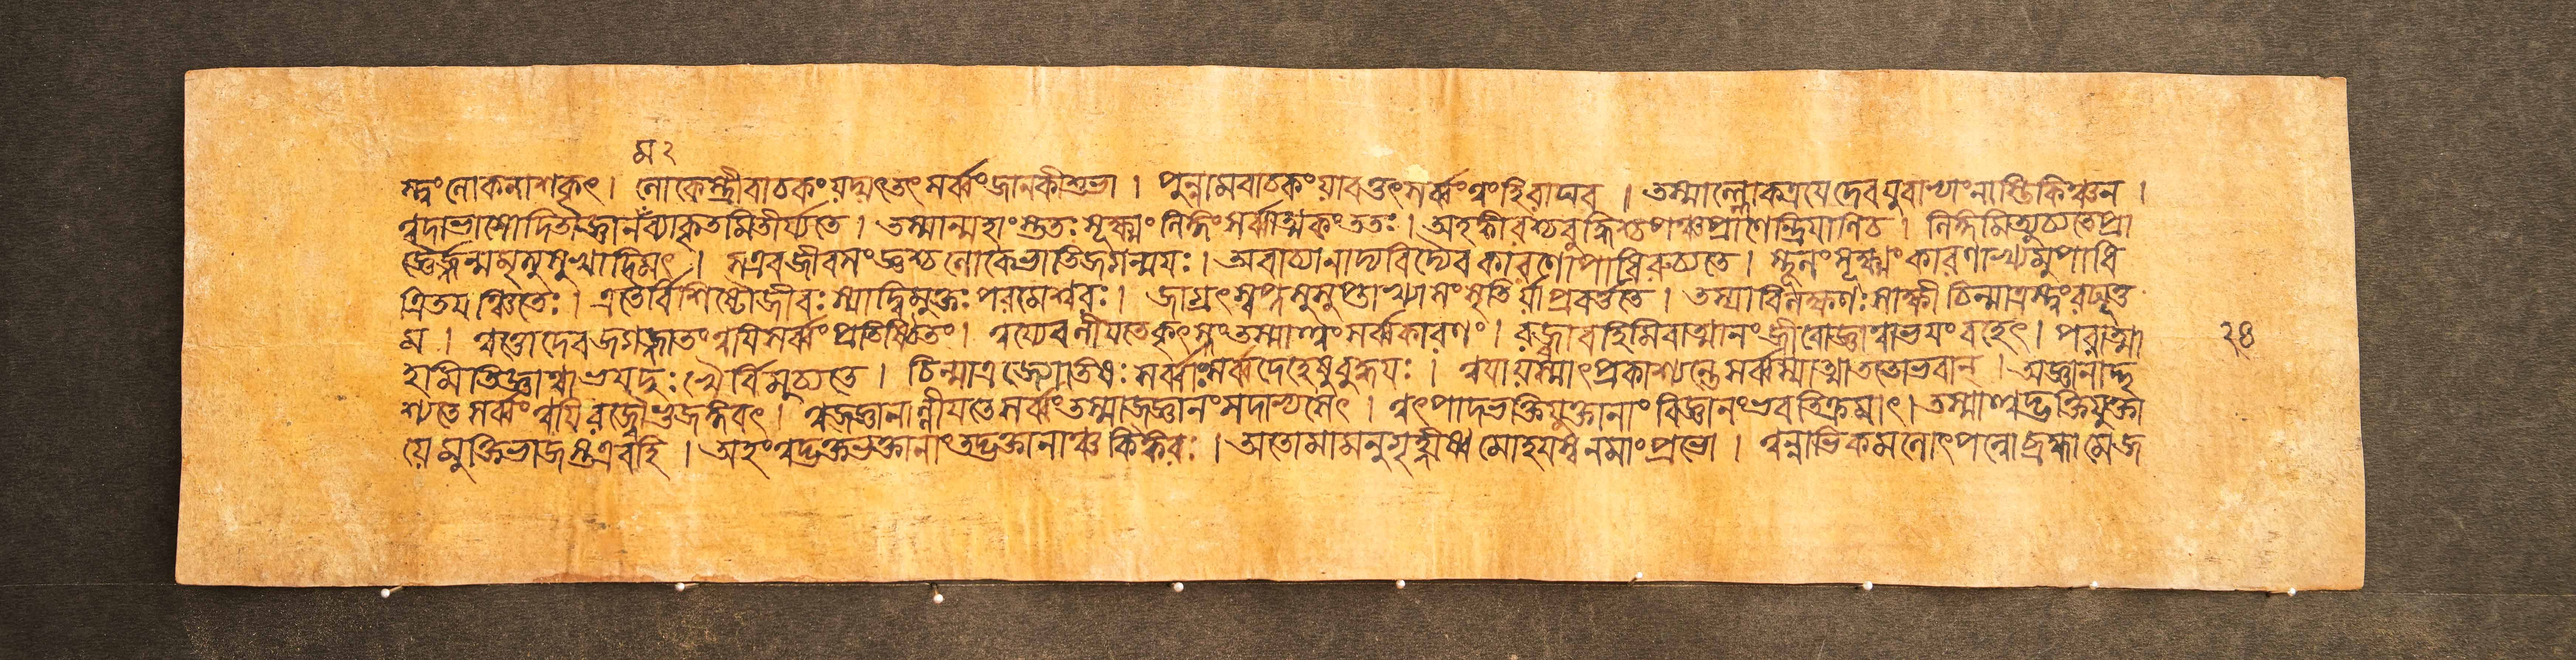 ম ২
স্ত্বং লোকনাশকৃৎ । লোকে স্ত্রীবাচকং যদ্যৎতৎ সর্ব্বং জানকীশুভা । পুন্নামবাচকং যাবত্তৎ সর্ব্বং ত্বং হি রাঘব । তস্মাল্লোকত্রয়ে দেব যুবাভ্যাং নাস্তি কিঞ্চন ।
ত্বদাভাসোদিতাজ্ঞানমব্যাকৃতমিতীর্য্যতে । তস্মান্মহাংস্ততঃ সূক্ষ্মং লিঙ্গং সর্ব্বাত্মকং ততঃ । অহঙ্কারশ্চ বুদ্ধিশ্চ পঞ্চপ্রাণেন্দ্রিয়াণি চ । লিঙ্গমিত্যুচ্যতে প্রা
জ্ঞৈর্জন্মমৃত্যুসুখাদিমৎ । স এব জীবসংজ্ঞশ্চ লোকে ভাতি জগন্ময়ঃ । অবাচ্যানাদ্যবিদ্যৈব কারণোপাধিরুচ্যতে । স্থূলং সূক্ষ্মং কারণাখ্যমুপাধি
ত্রিতয়ঞ্চিতেঃ । এতৈর্বিশিষ্টো জীবঃ স্যাদ্বিমুক্তঃ পরমেশ্বরঃ । জাগ্রৎস্বপ্নসুষুপ্ত্যাখ্যা সংসৃতির্যা প্রবর্ত্ততে । তস্যা বিলক্ষণঃ সাক্ষী চিন্মাত্রস্ত্বং রঘূত্ত
ম । ত্বত্তো দেব জগজ্জাতং ত্বয়ি সর্ব্বং প্রতিষ্ঠিতং । ত্বয্যেব লীয়তে কৃৎস্নং তস্মাত্ত্বং সর্ব্বকারণং । রজ্জাবহিমিবাত্মানং জীবো জ্ঞাত্বা ভয়ং বহেৎ । পরাত্মা
হমিতি জ্ঞাত্বা ভয়দুঃখৈর্বিমুচ্যতে । চিন্মাত্রজ্যোতিষঃ সর্ব্বাঃ সর্ব্বদেহেষু বুদ্ধয়ঃ । ত্বয়া যস্মাৎ প্রকাশ্যন্তে সর্ব্বস্যাত্মা ততো ভবান্ । অজ্ঞানাদ্দৃ
শ্যতে সর্ব্বং ত্বয়ি রজ্জৌ ভুজঙ্গবৎ । ত্বজ্জ্ঞানাল্লীয়তে সর্ব্বং তস্মাজ্জ্ঞানং সদাভ্যসেৎ । ত্বৎপাদভক্তিযুক্তানাং বিজ্ঞানং ভবতি ক্রমাৎ । তস্মাত্ত্বদ্ভক্তিযুক্তা
যে মুক্তিভাজস্ত এব হি । অহং ত্বদ্ভক্তভক্তানাং তদ্ভক্তানাঞ্চ কিঙ্করঃ । অতো মামনুগৃহ্ণীষ্ব মোহয়স্ব ন মাং প্রভো । ত্বন্নাভিকমলোৎপন্নো ব্রহ্মা মে জ
২৪